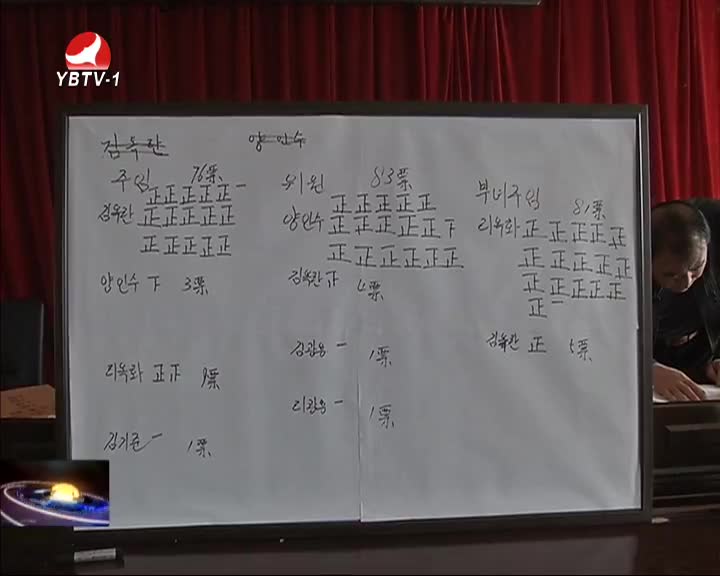 YBTV-1
김옥란
양인수
주임 76票
正正正正正一
김옥란 正正正正正
正正正正正
양인수 下 3票
리옥화 正正 9票
김기준 一 1票
위원 83票
正正正正正
양인수 正正正正正下
正正正正正正
김옥란 正 4票
김광용 一 1票
리광용 一 1票
부녀주임 81票
리옥화 正正正正正
正正正正正
正正正正正
正一
김옥란 正 5票